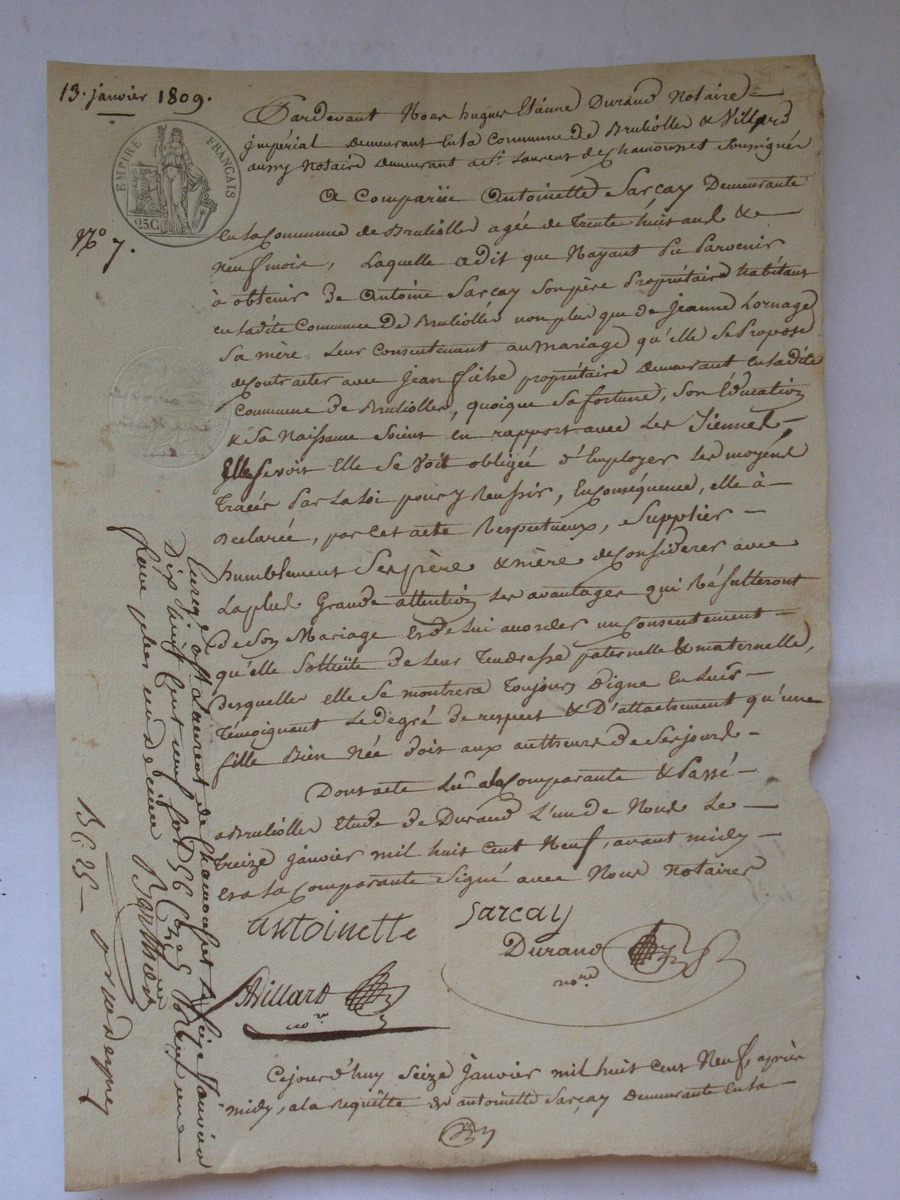 13. janvier 1809.
EMPIRE FRANÇAIS
25C
N.o 7.
Pardevant Nous hugues Etienne Durand Notaire
impérial demeurant en la Commune de Bruliolles & Villard
aussy Notaire demeurant a St. Laurent de Chamousset Soussignés
A Comparüe Antoinette Sarçay Demeurante
en la Commune de Brulioller agée de Trente huit ans &
Neuf mois, Laquelle a dit que Nayant pu Parvenir
à obtenir de Antoine Sarçay son père Propriétaire habitant
en ladite Commune De Brulioller non plus que de Jeanne Lornage
Sa mère Leur Consentement au Mariage qu'elle Se Propose
de Contracter avec Jean propriétaire demeurant en la dite
Commune de Brulioller, quoique Sa fortune, Son Education
& Sa Naissance Soient en rapport avec Les Siennes
Elle Se voit obligée d'Employer Les moyens
Tracés Par La Loi pour y Reussir, En Conséquence, elle a
Declaré, par cet acte Respectueux, Supplier
humblement Ses père & mère de Considerer avec
La plus Grande attention Les avantages qui Résulteront
de Son Mariage Et de Lui accorder un Consentement
qu'elle Sollicite de Leur Tendresse paternelle & maternelle,
desquelles elle Se montrera Toujours Digne En Leur
Témoignant Le degré de respect & D'attachement qu'une
fille Bien Née doit aux autheurs de Ses jours
Dont acte Lû a la Comparante & Passé
a Brulioller Etude de Durand L'un de Nous Le
Treize janvier mil huit Cent Neuf, avant midy
Et a la Comparante Signé avec Nous Notaires
antoinette Sarcay
Durand
no.re
Villard
no.re
Cejourd'huy Seize Janvier mil huit Cent Neuf, après
midy, a la Requête de antoinette Sarçay Demeurante en la
Enreg. a St. Laurent de Chamousset Le Seize Janvier
Dix huit Cent neuf